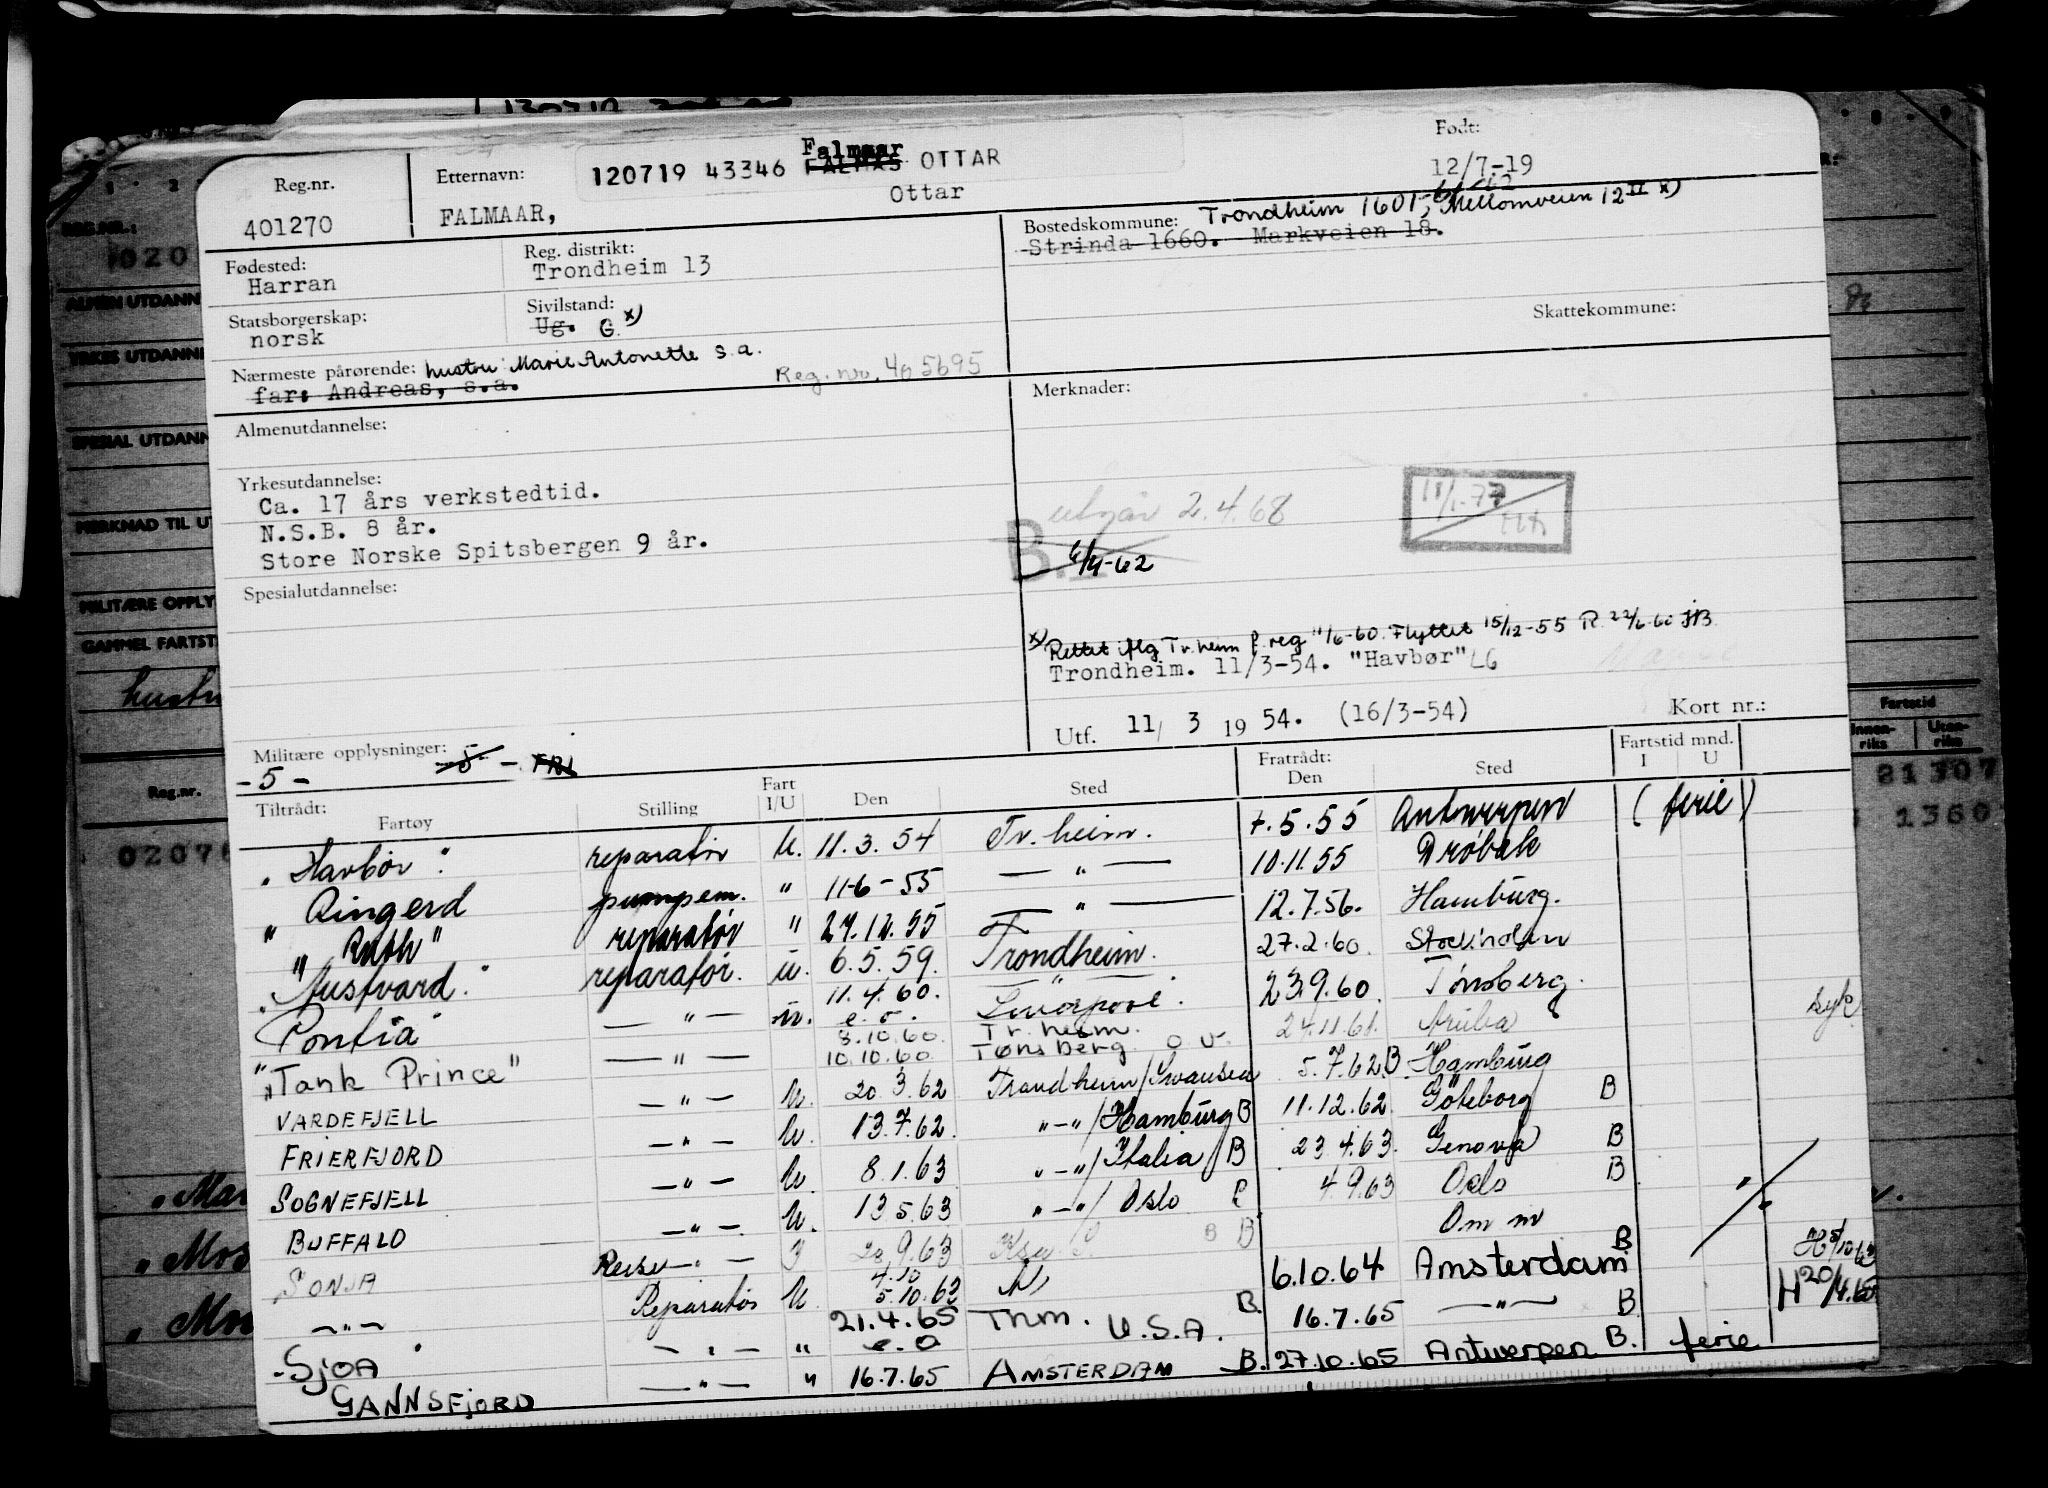 Reg.nr.
401270
Etternavn:
120719 43346 Falmaar FALMAS OTTAR
FALMAAR, Ottar
Født:
12/7-19
Bostedskommune: Trondheim 1601, Mellomveien 12 II x)
Strinda 1660. Markveien 18.
Fødested:
Harran
Reg. distrikt:
Trondheim 13
Statsborgerskap:
norsk
Sivilstand:
Ug. G x)
Skattekommune:
Nærmeste pårørende: hustru Marie Antonette s.a.
far: Andreas, s.a.
Reg. nr. 405695
Merknader:
Almenutdannelse:
Yrkesutdannelse:
Ca. 17 års verkstedtid.
N.S.B. 8 år.
Store Norske Spitsbergen 9 år.
utgår 2.4.68
6/4-62
Spesialutdannelse:
x) Rettet iflg Tr.heim f.reg 11/6-60. Flyttet 15/12-55 R. 22/6-60
Trondheim. 11/3-54. "Havbør" LG
Utf. 11/ 3 19 54. (16/3-54)
Kort nr.:
Militære opplysninger:
-5-
Tiltrådt:
Fartøy Stilling Fart I/U Den Sted Fratrådt: Den Sted Fartstid mnd. I U
"Havbør" reparatør U. 11.3.54 Tr.heim. 7.5.55 Antwerpen (ferie)
"Ringerd pumpem. " 11-6-55 — " — 10.11.55 Drøbak
"Ruth" reparatør " 27.12.55 — " — 12.7.56. Hamburg.
"Austvard" reparatør. u. 6.5.59. Trondheim. 27.2.60. Stockholm
"Pontia" — " — u. 11.4.60. e.o. — " — Liverpool. 23.9.60. Tønsberg.
"Tank Prince" — " — 8.10.60. 10.10.60 Tr.heim. Tønsberg o v. 24.11.61. Aruba syk
VARDEFJELL — " — U. 20.3.62 Trondheim/Swansea 5.7.62 B Hamburg
FRIERFJORD — " — U. 13.7.62. " — "/Hamburg B 11.12.62. Göteborg B
SOGNEFJELL — " — U. 8.1.63 " — "/Italia B 23 4.63. Genova B
BUFFALO — " — U. 13 5.63 " — "/Oslo 4.9.63 Oslo B
SONJA 9.63 B Om m
— " — Reparatør U. 4.10 5.10.63 6.10.64 Amsterdam B
SJOA — " — " 21.4.65 e.o Tnm. U.S.A. B. 16.7.65 — " — B H 20/4.65
GANNSFJORD — " — " 16.7.65 AMSTERDAM B. 27.10.65 Antwerpen B. ferie